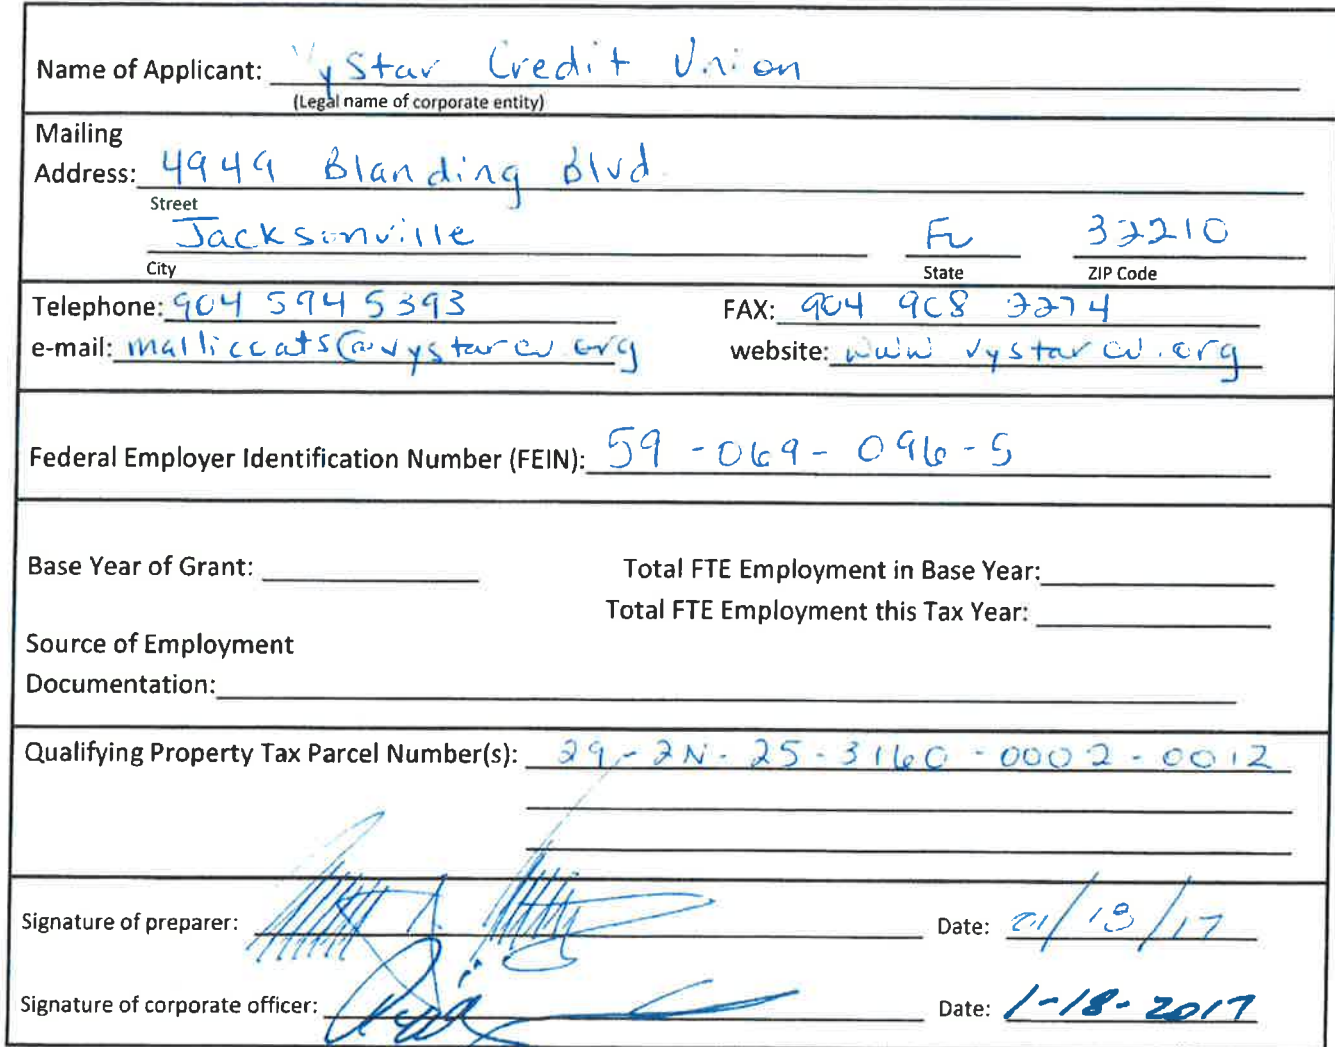 Name of Applicant: VyStar Credit Union
(Legal name of corporate entity)
Mailing
Address: 4949 Blanding Blvd.
Street
Jacksonville FL 32210
City State ZIP Code
Telephone: 904 594 5393 FAX: 904 908 2274
e-mail: malliccats@vystarcu.org website: www.vystarcu.org
Federal Employer Identification Number (FEIN): 59-069-096-5
Base Year of Grant: Total FTE Employment in Base Year:
Total FTE Employment this Tax Year:
Source of Employment
Documentation:
Qualifying Property Tax Parcel Number(s): 29-2N-25-3160-0002-0012
Signature of preparer: Date: 01/18/17
Signature of corporate officer: Date: 1-18-2017